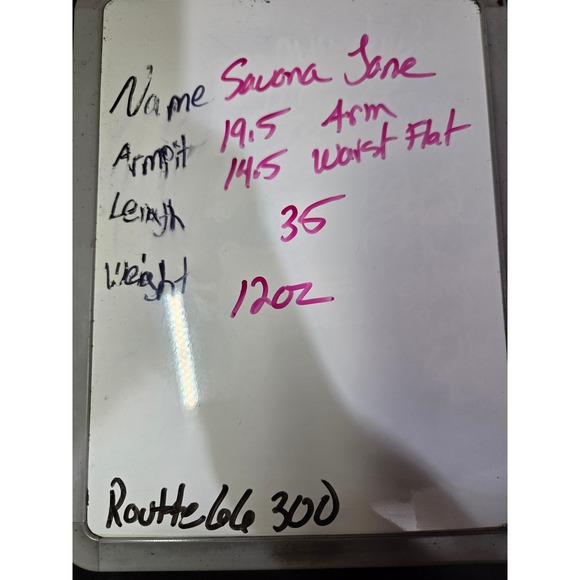 Name Savana Jane
Armpit 19.5 Arm
14.5 Waist Flat
Length 35
Weight 12oz
Routte66 300